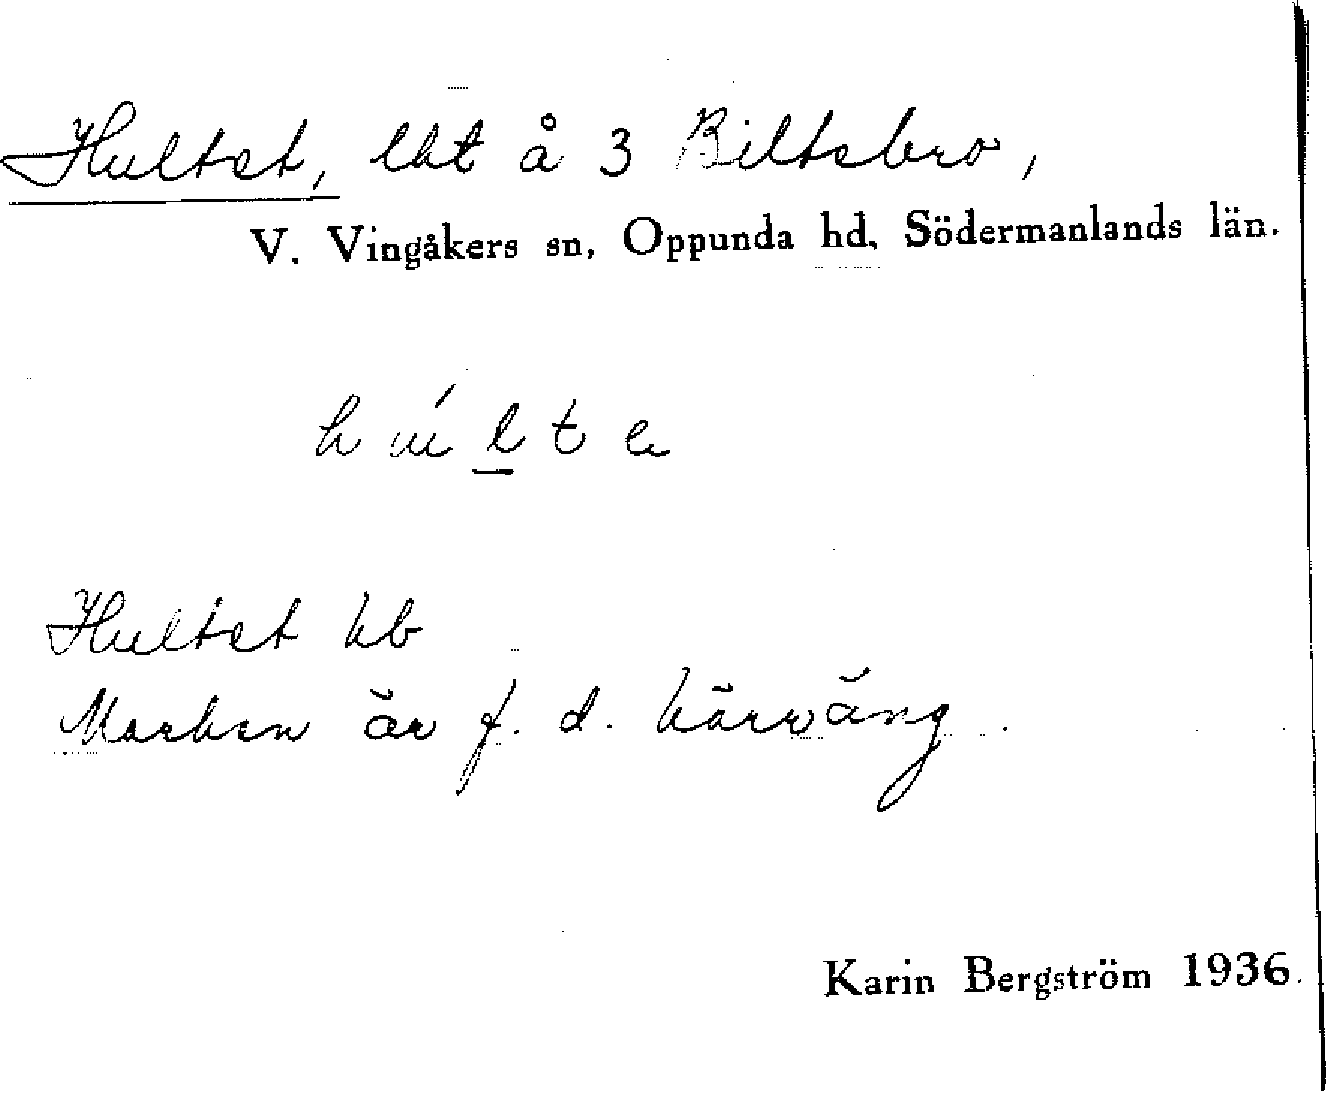 Hultet, lht å 3 Biltsbro,
V. Vingåkers sn, Oppunda hd, Södermanlands län.
húlte
Hultet kb
Marken är f. d. kärräng.
Karin Bergström 1936.